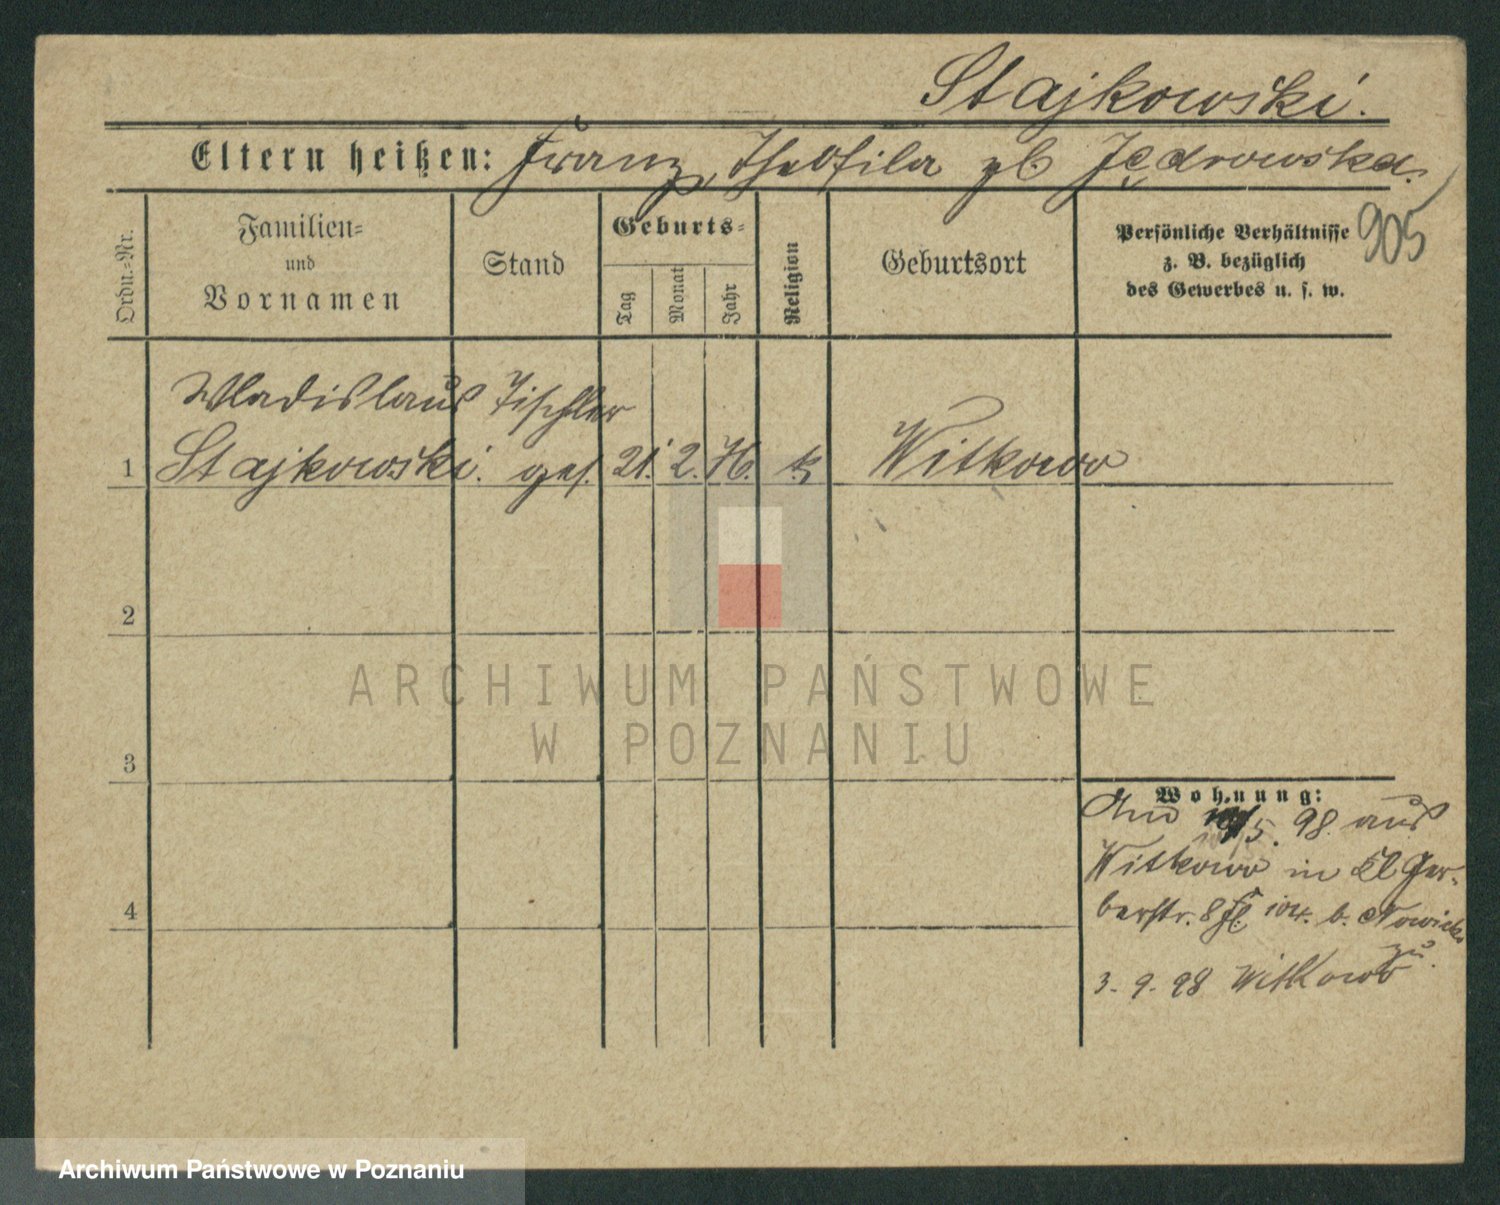 Stajkowski.
Eltern heißen: Franz, Theofila gb. Jędrowska.
905
Ordn.-Nr.
Familien-
und
Vornamen
Stand
Geburts-
Tag
Monat
Jahr
Religion
Geburtsort
Persönliche Verhältnisse
z. B. bezüglich
des Gewerbes u. s. w.
Wladislaus Tischler
1 Stajkowski. ges. 21. 2. 76. k Witkowo
2
3
4
ARCHIWUM PAŃSTWOWE
W POZNANIU
Wohnung:
5. 98. aus
Witkowo in Kl Ger-
berstr. 8 b. Nowicki
zu
3. 9. 98 Witkowo
Archiwum Państwowe w Poznaniu